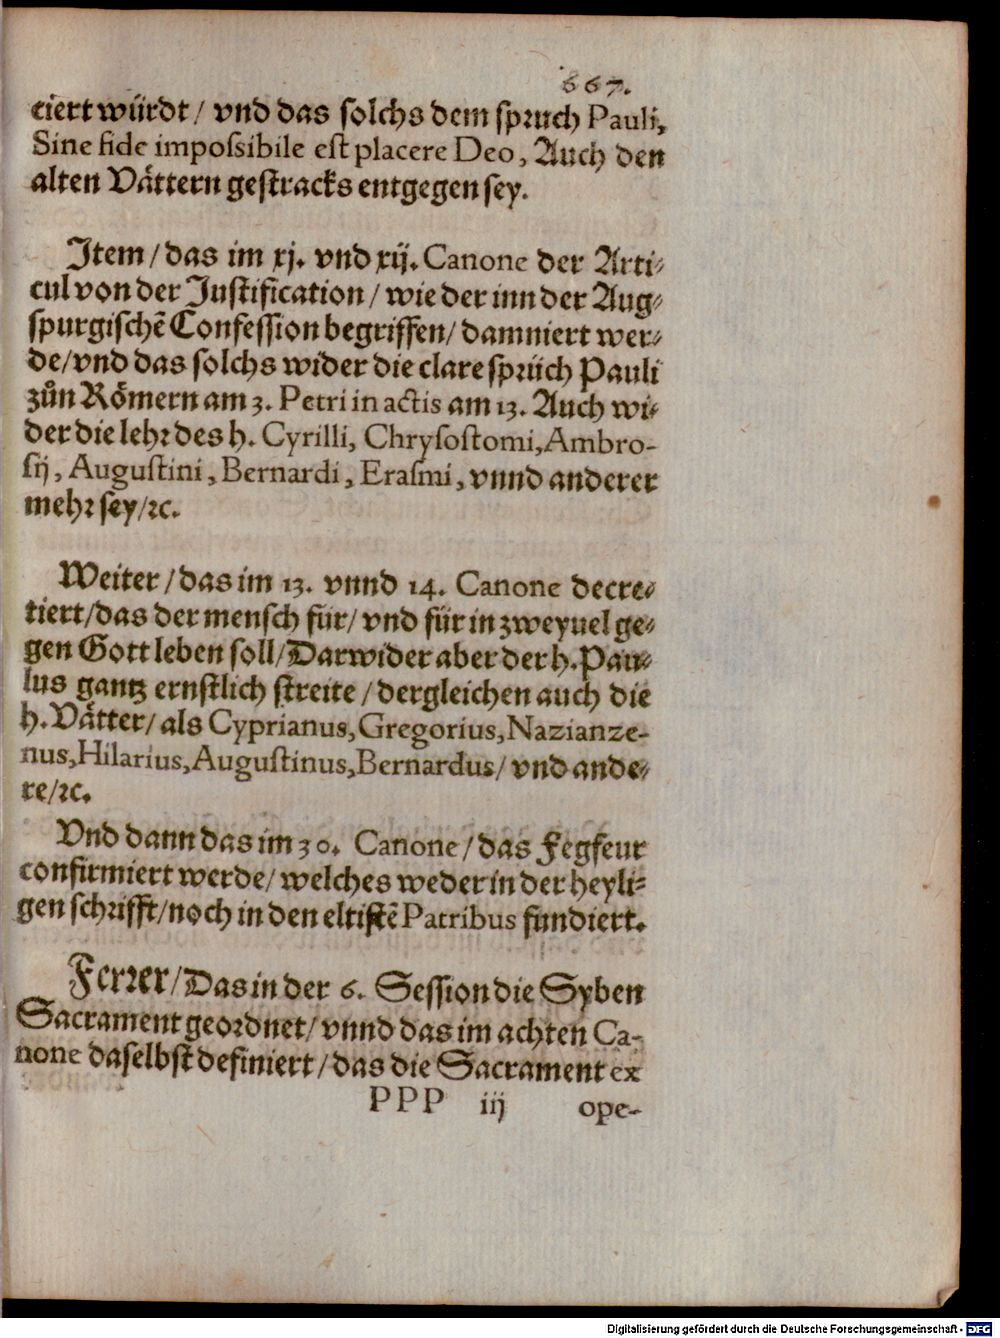 667.
ciert würdt / vnd das solchs dem spruch Pauli,
Sine fide impossibile est placere Deo, Auch den
alten Vättern gestracks entgegen sey.
Item / das im xj. vnd xij. Canone der Arti-
cul von der Justification / wie der inn der Aug-
spurgischẽ Confession begriffen / damniert wer-
de / vnd das solchs wider die clare sprüch Pauli
zůn Römern am 3. Petri in actis am 13. Auch wi-
der die lehr des h. Cyrilli, Chrysostomi, Ambro-
sij, Augustini, Bernardi, Erasmi, vnnd anderer
mehr sey / ꝛc.
Weiter / das im 13. vnnd 14. Canone decre-
tiert / das der mensch für / vnd für in zweyuel ge-
gen Gott leben soll / Darwider aber der h. Pau-
lus gantz ernstlich streite / dergleichen auch die
h. Vätter / als Cyprianus, Gregorius, Nazianze-
nus, Hilarius, Augustinus, Bernardus / vnd ande-
re / ꝛc.
Vnd dann das im 30. Canone / das Fegfeur
confirmiert werde / welches weder in der heyli-
gen schrifft / noch in den eltistẽ Patribus fundiert.
Ferrer / Das in der 6. Session die Syben
Sacrament geordnet / vnnd das im achten Ca-
none daselbst definiert / das die Sacrament ex
PPP iij ope-
Digitalisierung gefördert durch die Deutsche Forschungsgemeinschaft - DFG